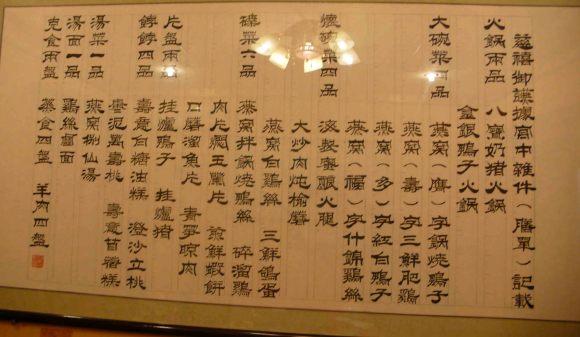 慈禧御譜據宮中雜件（膳單）記載
火鍋兩品　八寶奶猪火鍋
金銀鴨子火鍋
大碗菜四品　燕窝（慶）字鍋燒鴨子
燕窝（壽）字三鮮肥鷄
燕窝（多）字紅白鴨子
燕窝（福）字什錦鷄絲
懷碗菜四品　火腿
大炒肉炖榆蘑
燕窝白鷄絲　三鮮鴿蛋
碟菜六品　燕窝拌鍋燒鴨絲　碎溜鷄
肉片燜玉蘭片　煎鮮蝦餅
口蘑溜魚片　青笋晾肉
片盤兩品　挂爐鴨子　挂爐猪
餑餑四品　壽意白糖油糕　澄沙立桃
棗泥萬壽桃　壽意苜蓿糕
湯菜一品　燕窝捌仙湯
湯面一品　鷄絲面
克食兩盤　蒸食四盤　羊肉四盤